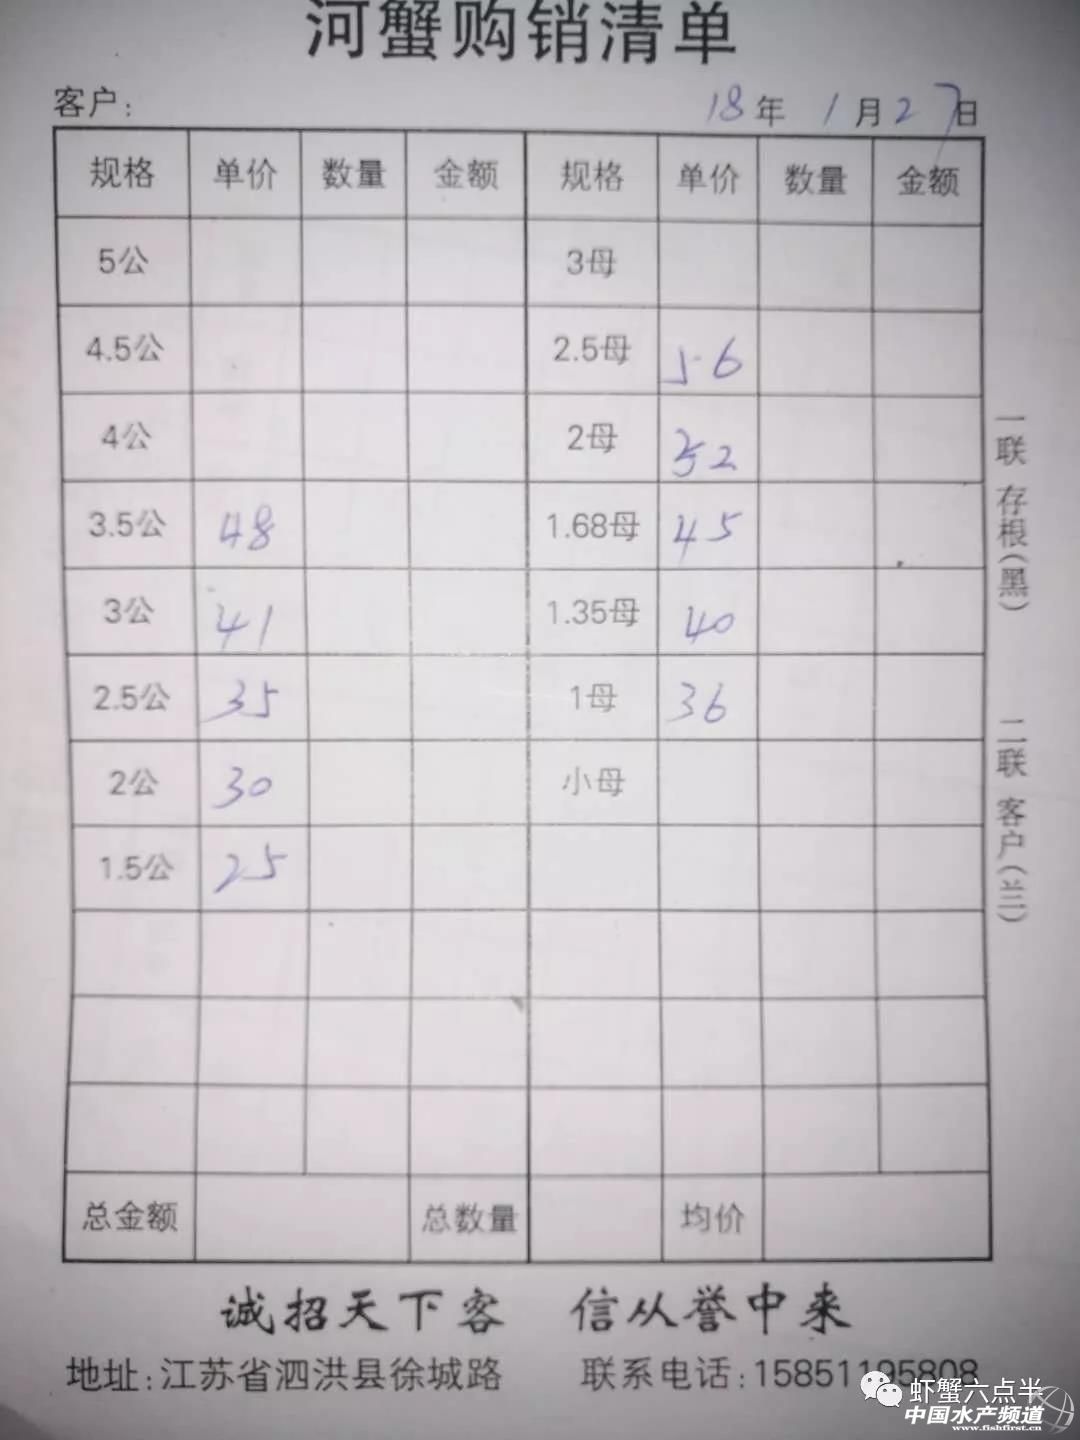 河蟹购销清单
客户: 18年 1月27日
规格 单价 数量 金额 规格 单价 数量 金额
5公 3母
4.5公 2.5母 56
4公 2母 52
3.5公 48 1.68母 45
3公 41 1.35母 40
2.5公 35 1母 36
2公 30 小母
1.5公 25
总金额 总数量 均价
一联 存根(黑) 二联 客户(兰)
诚招天下客 信从誉中来
地址:江苏省泗洪县徐城路 联系电话:15851195808
虾蟹六点半
中国水产频道
www.fishfirst.cn